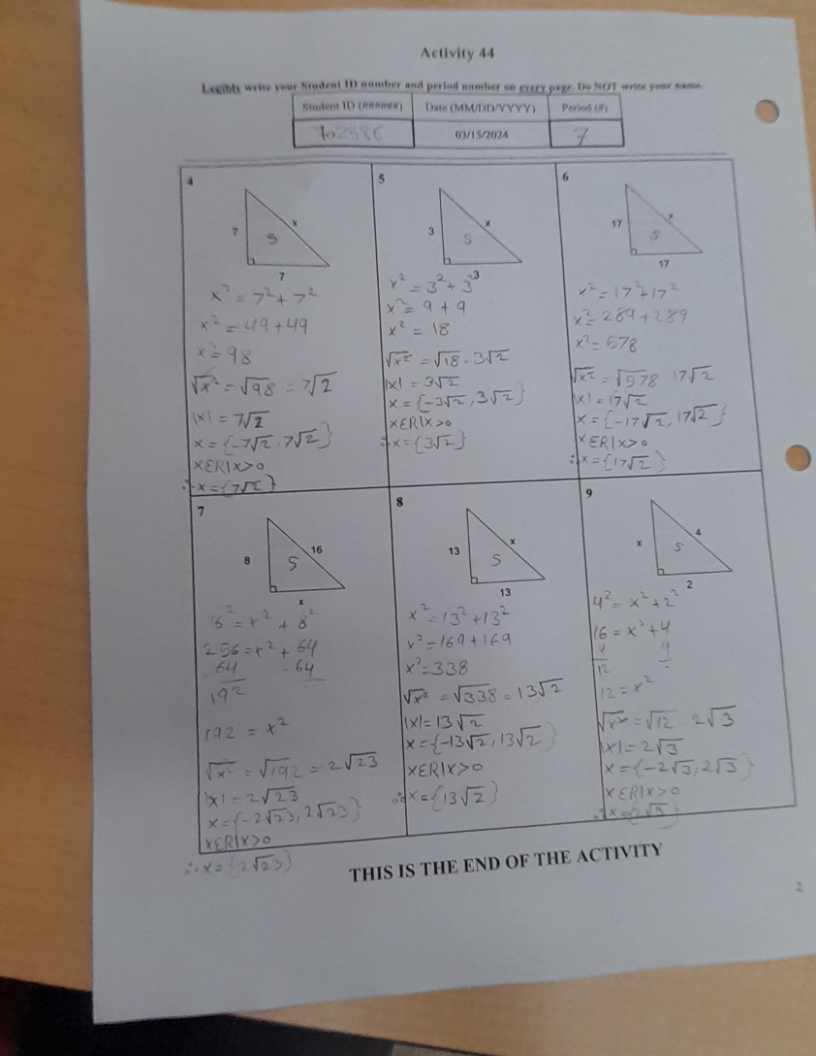 Activity 44
Legibly write your Student ID number and period number on every page. Do NOT write your name.
Student ID (######) Date (MM/DD/YYYY) Period (#)
03/15/2024 7
4
7
x
S
7
x² = 7² + 7²
x² = 49 + 49
x² = 98
√x² = √98 = 7√2
|x| = 7√2
x = {-7√2, 7√2}
xER|x>0
∴ x = {7√2}
5
3
x
S
3
x² = 3² + 3²
x² = 9 + 9
x² = 18
√x² = √18 · 3√2
|x| = 3√2
x = {-3√2, 3√2}
xER|x>0
∴ x = {3√2}
6
17
x
S
17
x² = 17² + 17²
x² = 289 + 289
x² = 578
√x² = √578 17√2
|x| = 17√2
x = {-17√2, 17√2}
xER|x>0
∴ x = {17√2}
7
8
16
S
x
² = x² + 8²
256 = x² + 64
-64 -64
192
192 = x²
√x² = √192 = 2√23
|x| = 2√23
x = {-2√23, 2√23}
xER|x>0
∴ x = {2√23}
8
13
x
S
13
x² = 13² + 13²
x² = 169 + 169
x² = 338
√x² = √338 = 13√2
|x| = 13√2
x = {-13√2, 13√2}
xER|x>0
∴ x = {13√2}
9
x
4
S
2
4² = x² + 2²
16 = x² + 4
4 4
12
12 = x²
√x² = √12 2√3
|x| = 2√3
x = {-2√3, 2√3}
xER|x>0
∴ x = {2√3}
THIS IS THE END OF THE ACTIVITY
2